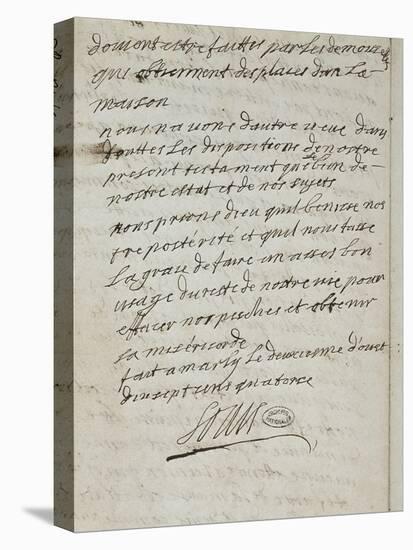 doivent estre faittes par les demoiselles
qui obtiennent des places dans la
maison
nous navons dautre veue dans
touttes les dispositions de nostre
present testament que le bien de
nostre estat et de nos sujets
nous prions dieu quil benisse nos
tre postérité et quil nous fasse
la grase de faire un asses bon
usage du reste de nostre vie pour
effacer nos peschés et obtenir
sa miséricorde
fait a marly le deuxiesme d'oust
dix sept cens quatorse
Louis